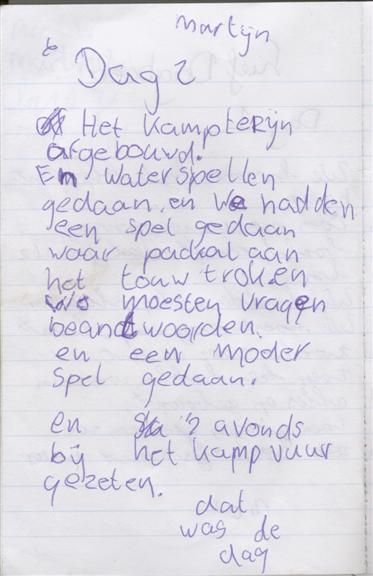 Martijn
Dag 2
Het kampterijn
afgebouwd.
En waterspellen
gedaan. en We hadden
een spel gedaan
waar packal aan
het touw troken
We moesten vragen
beandwoorden.
en een moder
spel gedaan.
en 's avonds
bij het kampvuur
gezeten.
dat
was de
dag